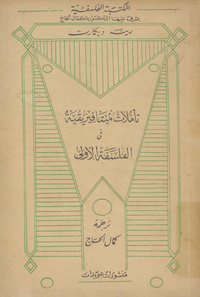 المكتبة الفلسفية
يشرف عليها الدكتور كمال الحاج
رينه ديكارت
تأملات ميتافيزيقية
في
الفلسفة الأولى
ترجمة
كمال الحاج
منشورات عويدات